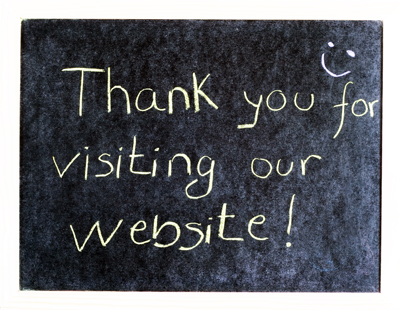 Thank you for
visiting our
website!